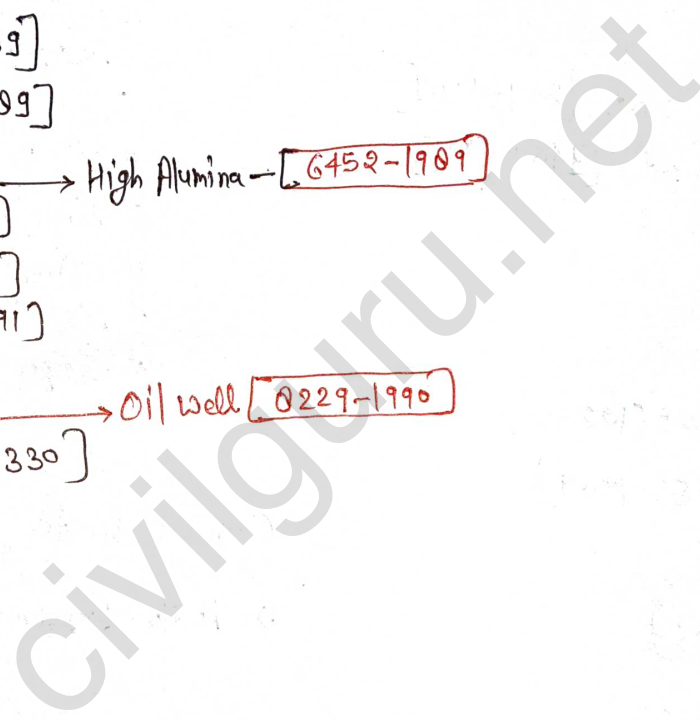 9]
89]
→ High Alumina - [6452-1989]
]
]
91]
→ Oil well [8229-1990]
330]
civilguru.net